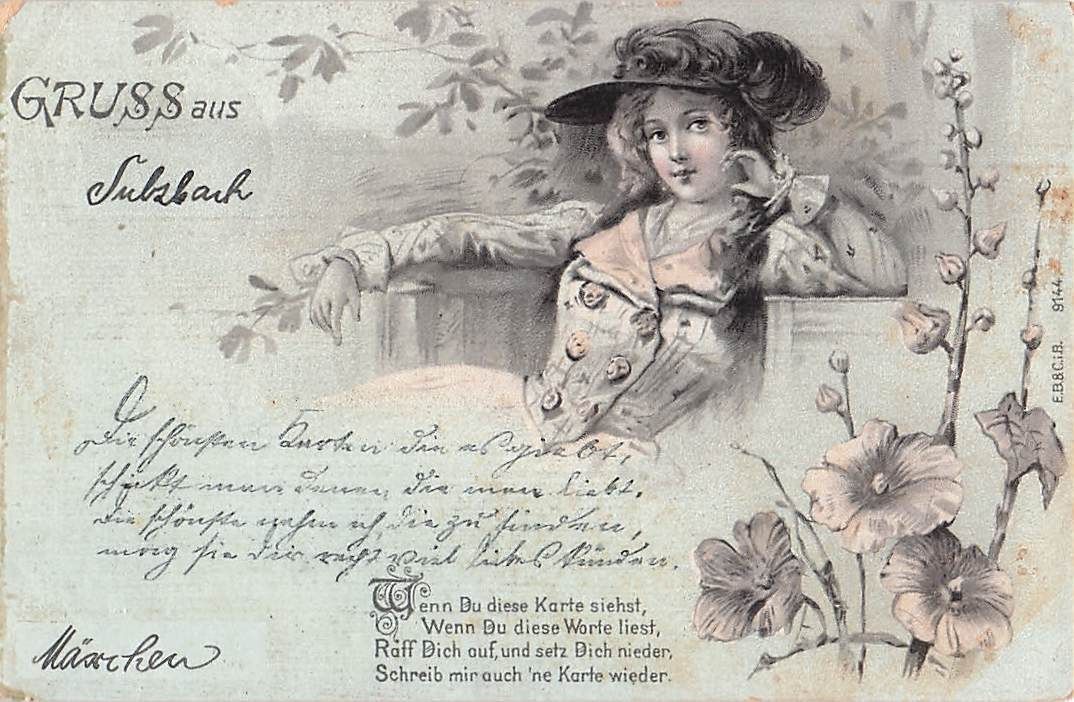 GRUSS aus
Sulzbach
Die schönsten Karten die es giebt,
schickt man denen, die man liebt.
die schönste nehm ich, die zu finden,
mög sie dir recht viel liebes künden.
Wenn Du diese Karte siehst,
Wenn Du diese Worte liest,
Raff Dich auf, und setz Dich nieder,
Schreib mir auch 'ne Karte wieder.
E.B.&C.i.B. 9144